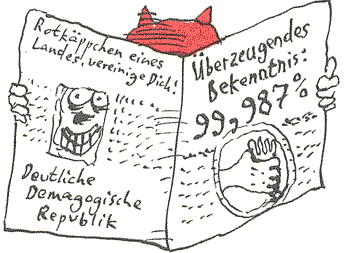 Rotkäppchen eines
Landes, vereinige Dich!
Deutliche
Demagogische
Republik
Überzeugendes
Bekenntnis:
99,987%